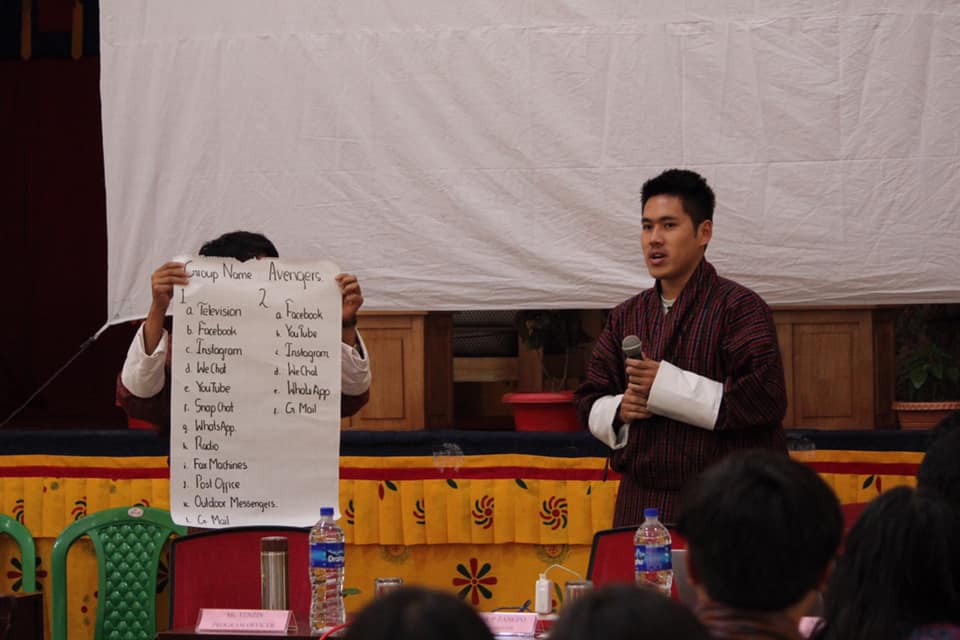 Group Name Avengers.
1
a. Television
b. Facebook
c. Instagram
d. WeChat
e. YouTube
f. SnapChat
g. WhatsApp.
h. Radio
i. Fax Machines
j. Post Office
k. Outdoor Messengers.
l. G Mail
2
a. Facebook
b. YouTube
c. Instagram
d. WeChat
e. WhatsApp
f. G Mail
PROGRAM OFFICER